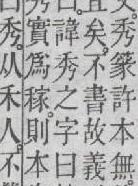 秀篆許本無。
宜矣。不書故義
曰。諱秀之字曰茂
秀實爲稼。則本
秀。从禾人。不